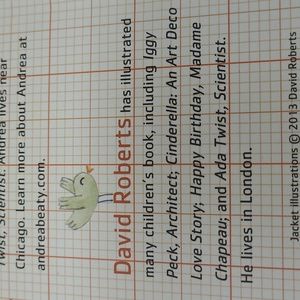 Twist, Scientist. Andrea lives near
Chicago. Learn more about Andrea at
andreabeaty.com.
David Roberts has illustrated
many children's book, including Iggy
Peck, Architect; Cinderella: An Art Deco
Love Story; Happy Birthday, Madame
Chapeau; and Ada Twist, Scientist.
He lives in London.
Jacket illustrations © 2013 David Roberts